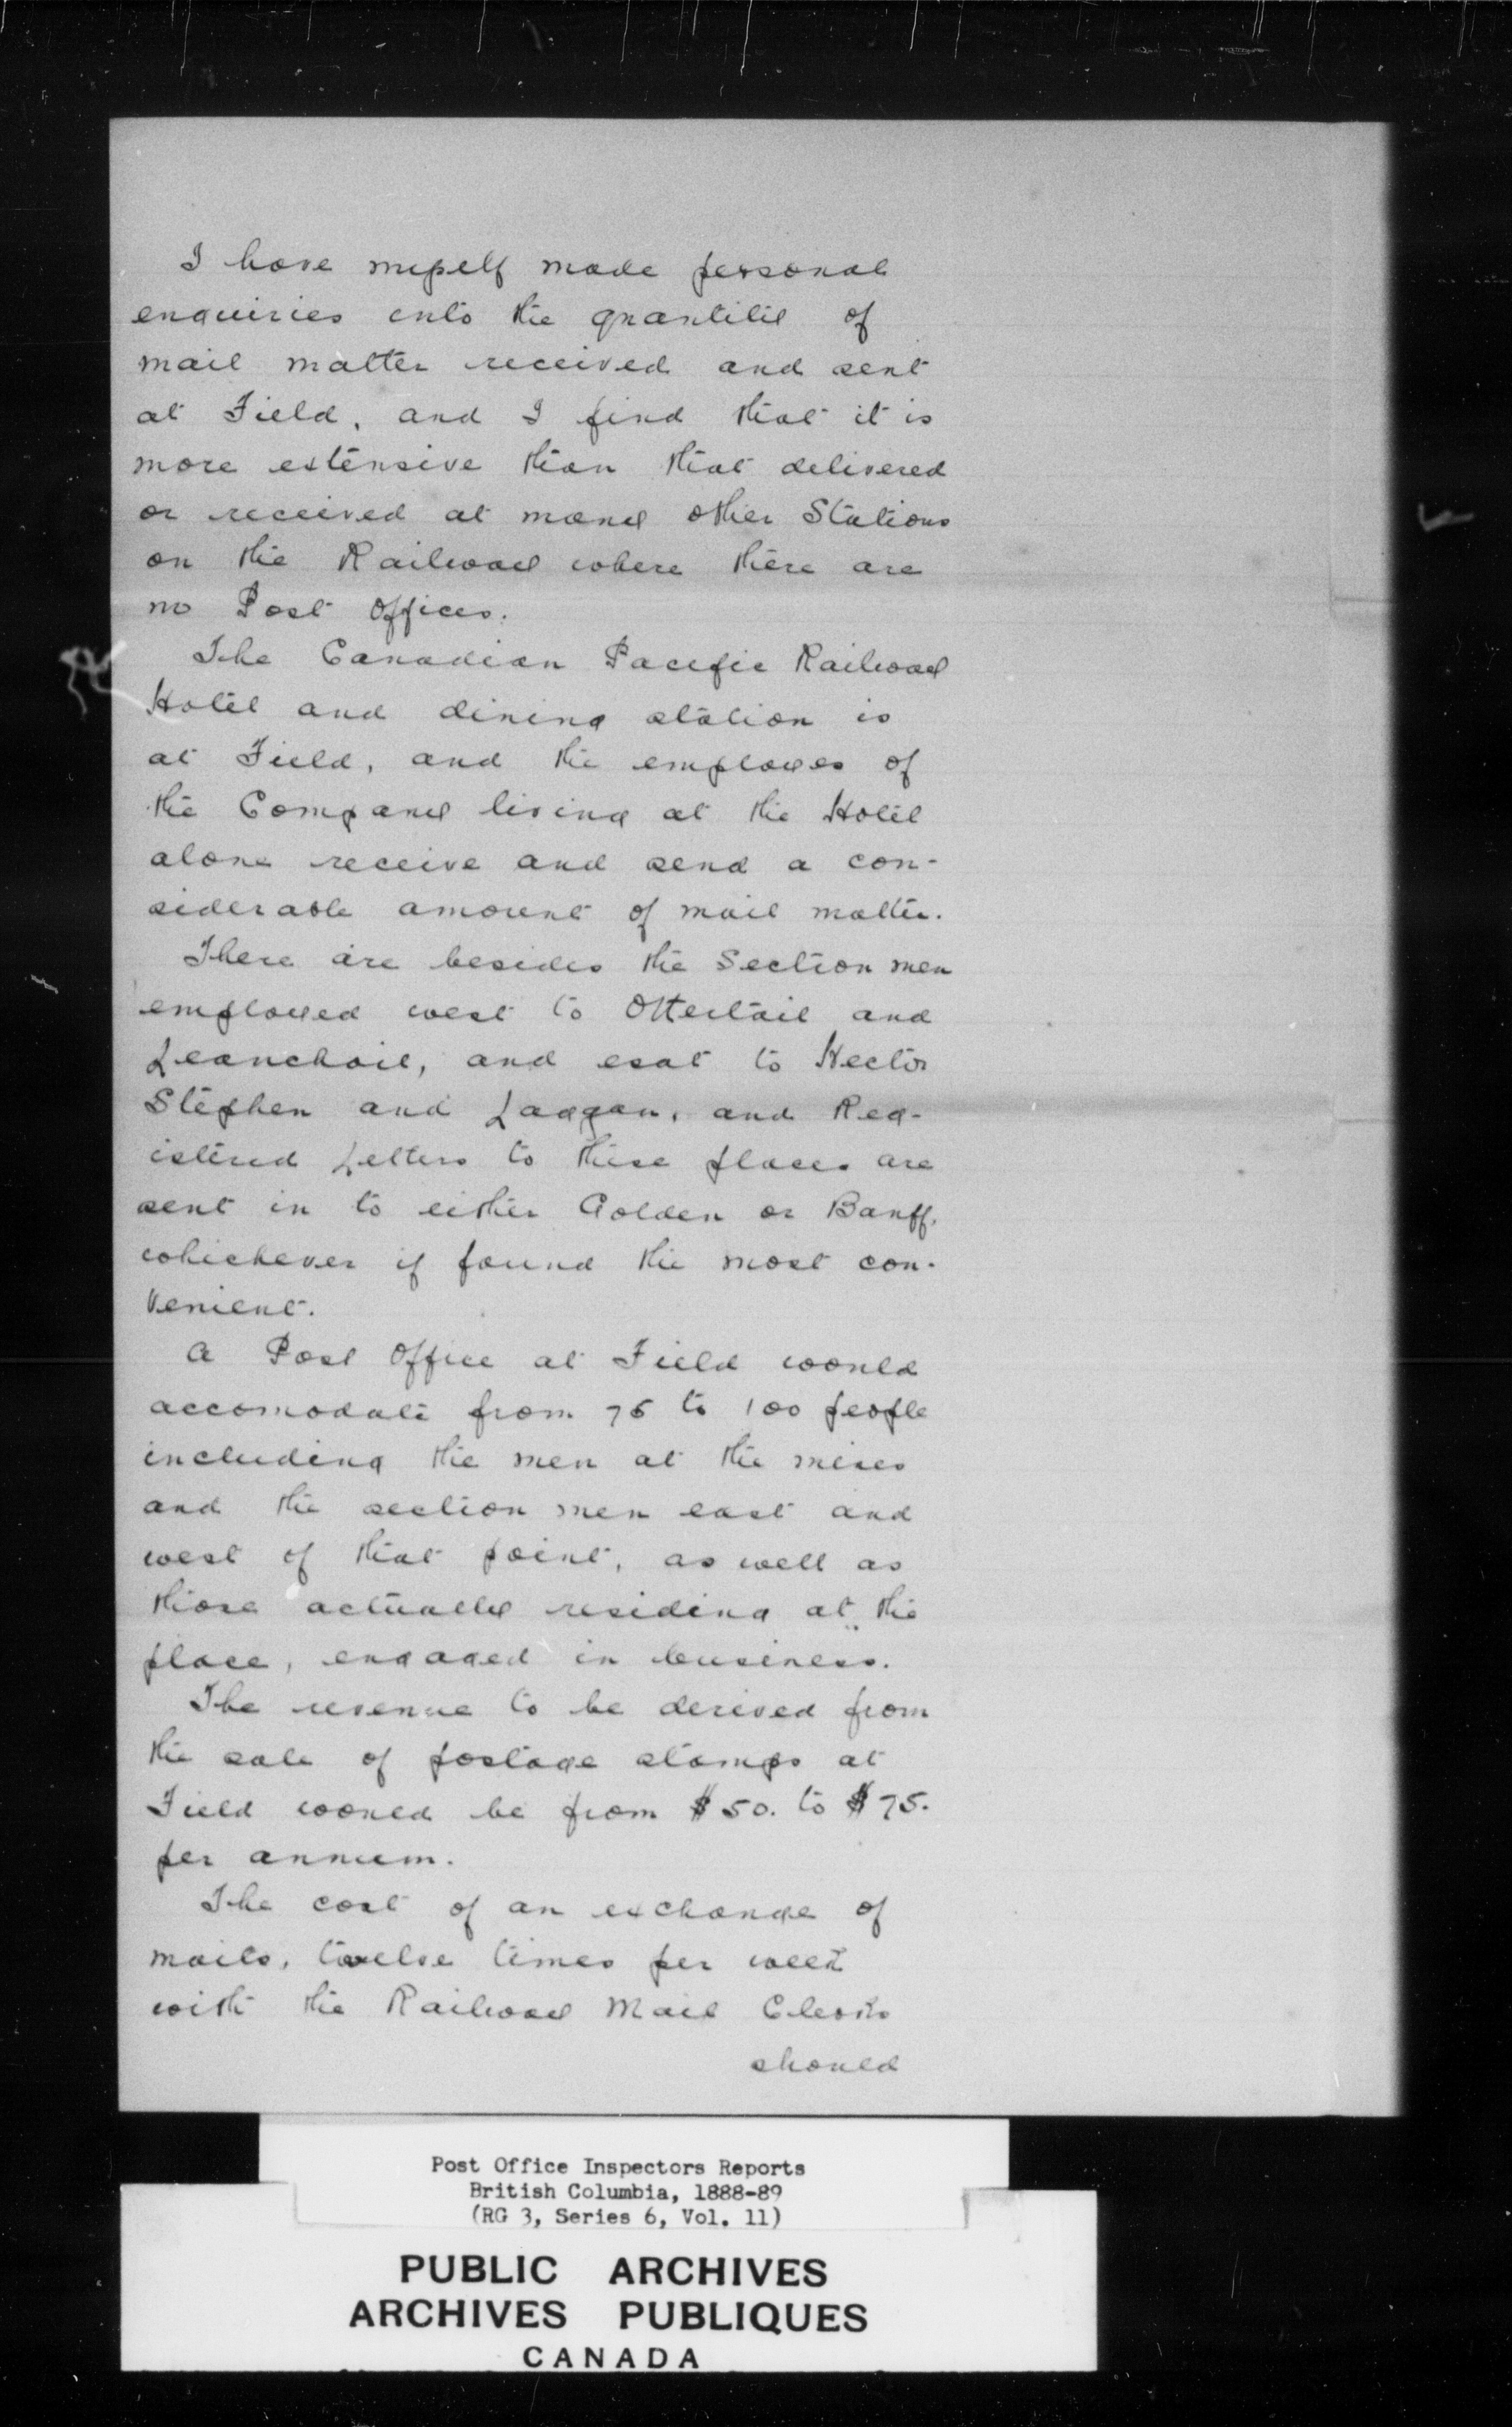 I have myself made personal
enquiries into the quantity of
mail matter received and sent
at Field, and I find that it is
more extensive than that delivered
or received at many other Stations
on the Railway where there are
no Post Offices.
The Canadian Pacific Railway
Hotel and dining station is
at Field, and the employes of
the Company living at the Hotel
alone receive and send a con-
siderable amount of mail matter.
There are besides the Section men
employed west to Ottertail and
Leanchoil, and esat to Hector
Stephen and Laggan, and Reg-
istered Letters to these places are
sent in to either Golden or Banff,
whichever if found the most con-
venient.
A Post Office at Field would
accomodate from 75 to 100 people
including the men at the mines
and the section men east and
west of that point, as well as
those actually residing at the
place, engaged in business.
The revenue to be derived from
the sale of postage stamps at
Field would be from $50. to $75.
per annum.
The cost of an exchange of
mails, twelve times per week
with the Railway Mail Clerks
should
Post Office Inspectors Reports
British Columbia, 1888-89
(RG 3, Series 6, Vol. 11)
PUBLIC ARCHIVES
ARCHIVES PUBLIQUES
CANADA